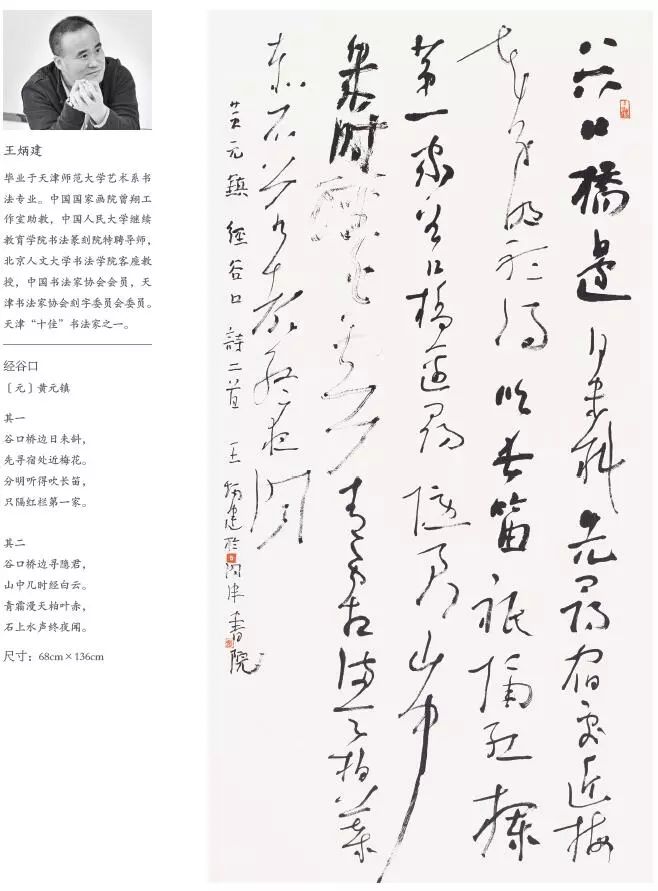 王炳建
毕业于天津师范大学艺术系书
法专业。中国国家画院曾翔工
作室助教，中国人民大学继续
教育学院书法篆刻院特聘导师，
北京人文大学书法学院客座教
授，中国书法家协会会员，天
津书法家协会刻字委员会委员。
天津“十佳”书法家之一。
经谷口
〔元〕黄元镇
其一
谷口桥边日未斜，
先寻宿处近梅花。
分明听得吹长笛，
只隔红栏第一家。
其二
谷口桥边寻隐君，
山中几时经白云。
青霜漫天柏叶赤，
石上水声终夜闻。
尺寸：68cm×136cm
谷口橋邊日未斜先尋宿處近梅
花分明听得吹長笛祇隔紅欄
第一家谷口橋邊尋隱君山中
幾時經白雲青霜漫天柏葉
赤石上水聲終夜聞
黄元鎮經谷口詩二首王炳建於問津書院